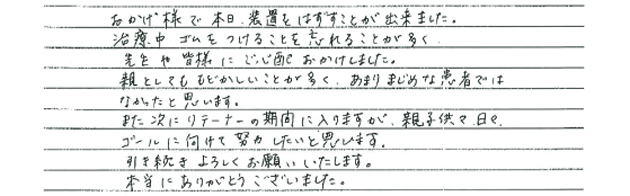 おかげ様で本日、装置をはずすことが出来ました。
治療中ゴムをつけることを忘れることが多く、
先生や皆様にご心配おかけしました。
親としてももどかしいことが多く、あまりまじめな患者では
なかったと思います。
また次にリテーナーの期間に入りますが、親子供々、日々、
ゴールに向けて努力したいと思います。
引き続きよろしくお願いいたします。
本当にありがとうございました。